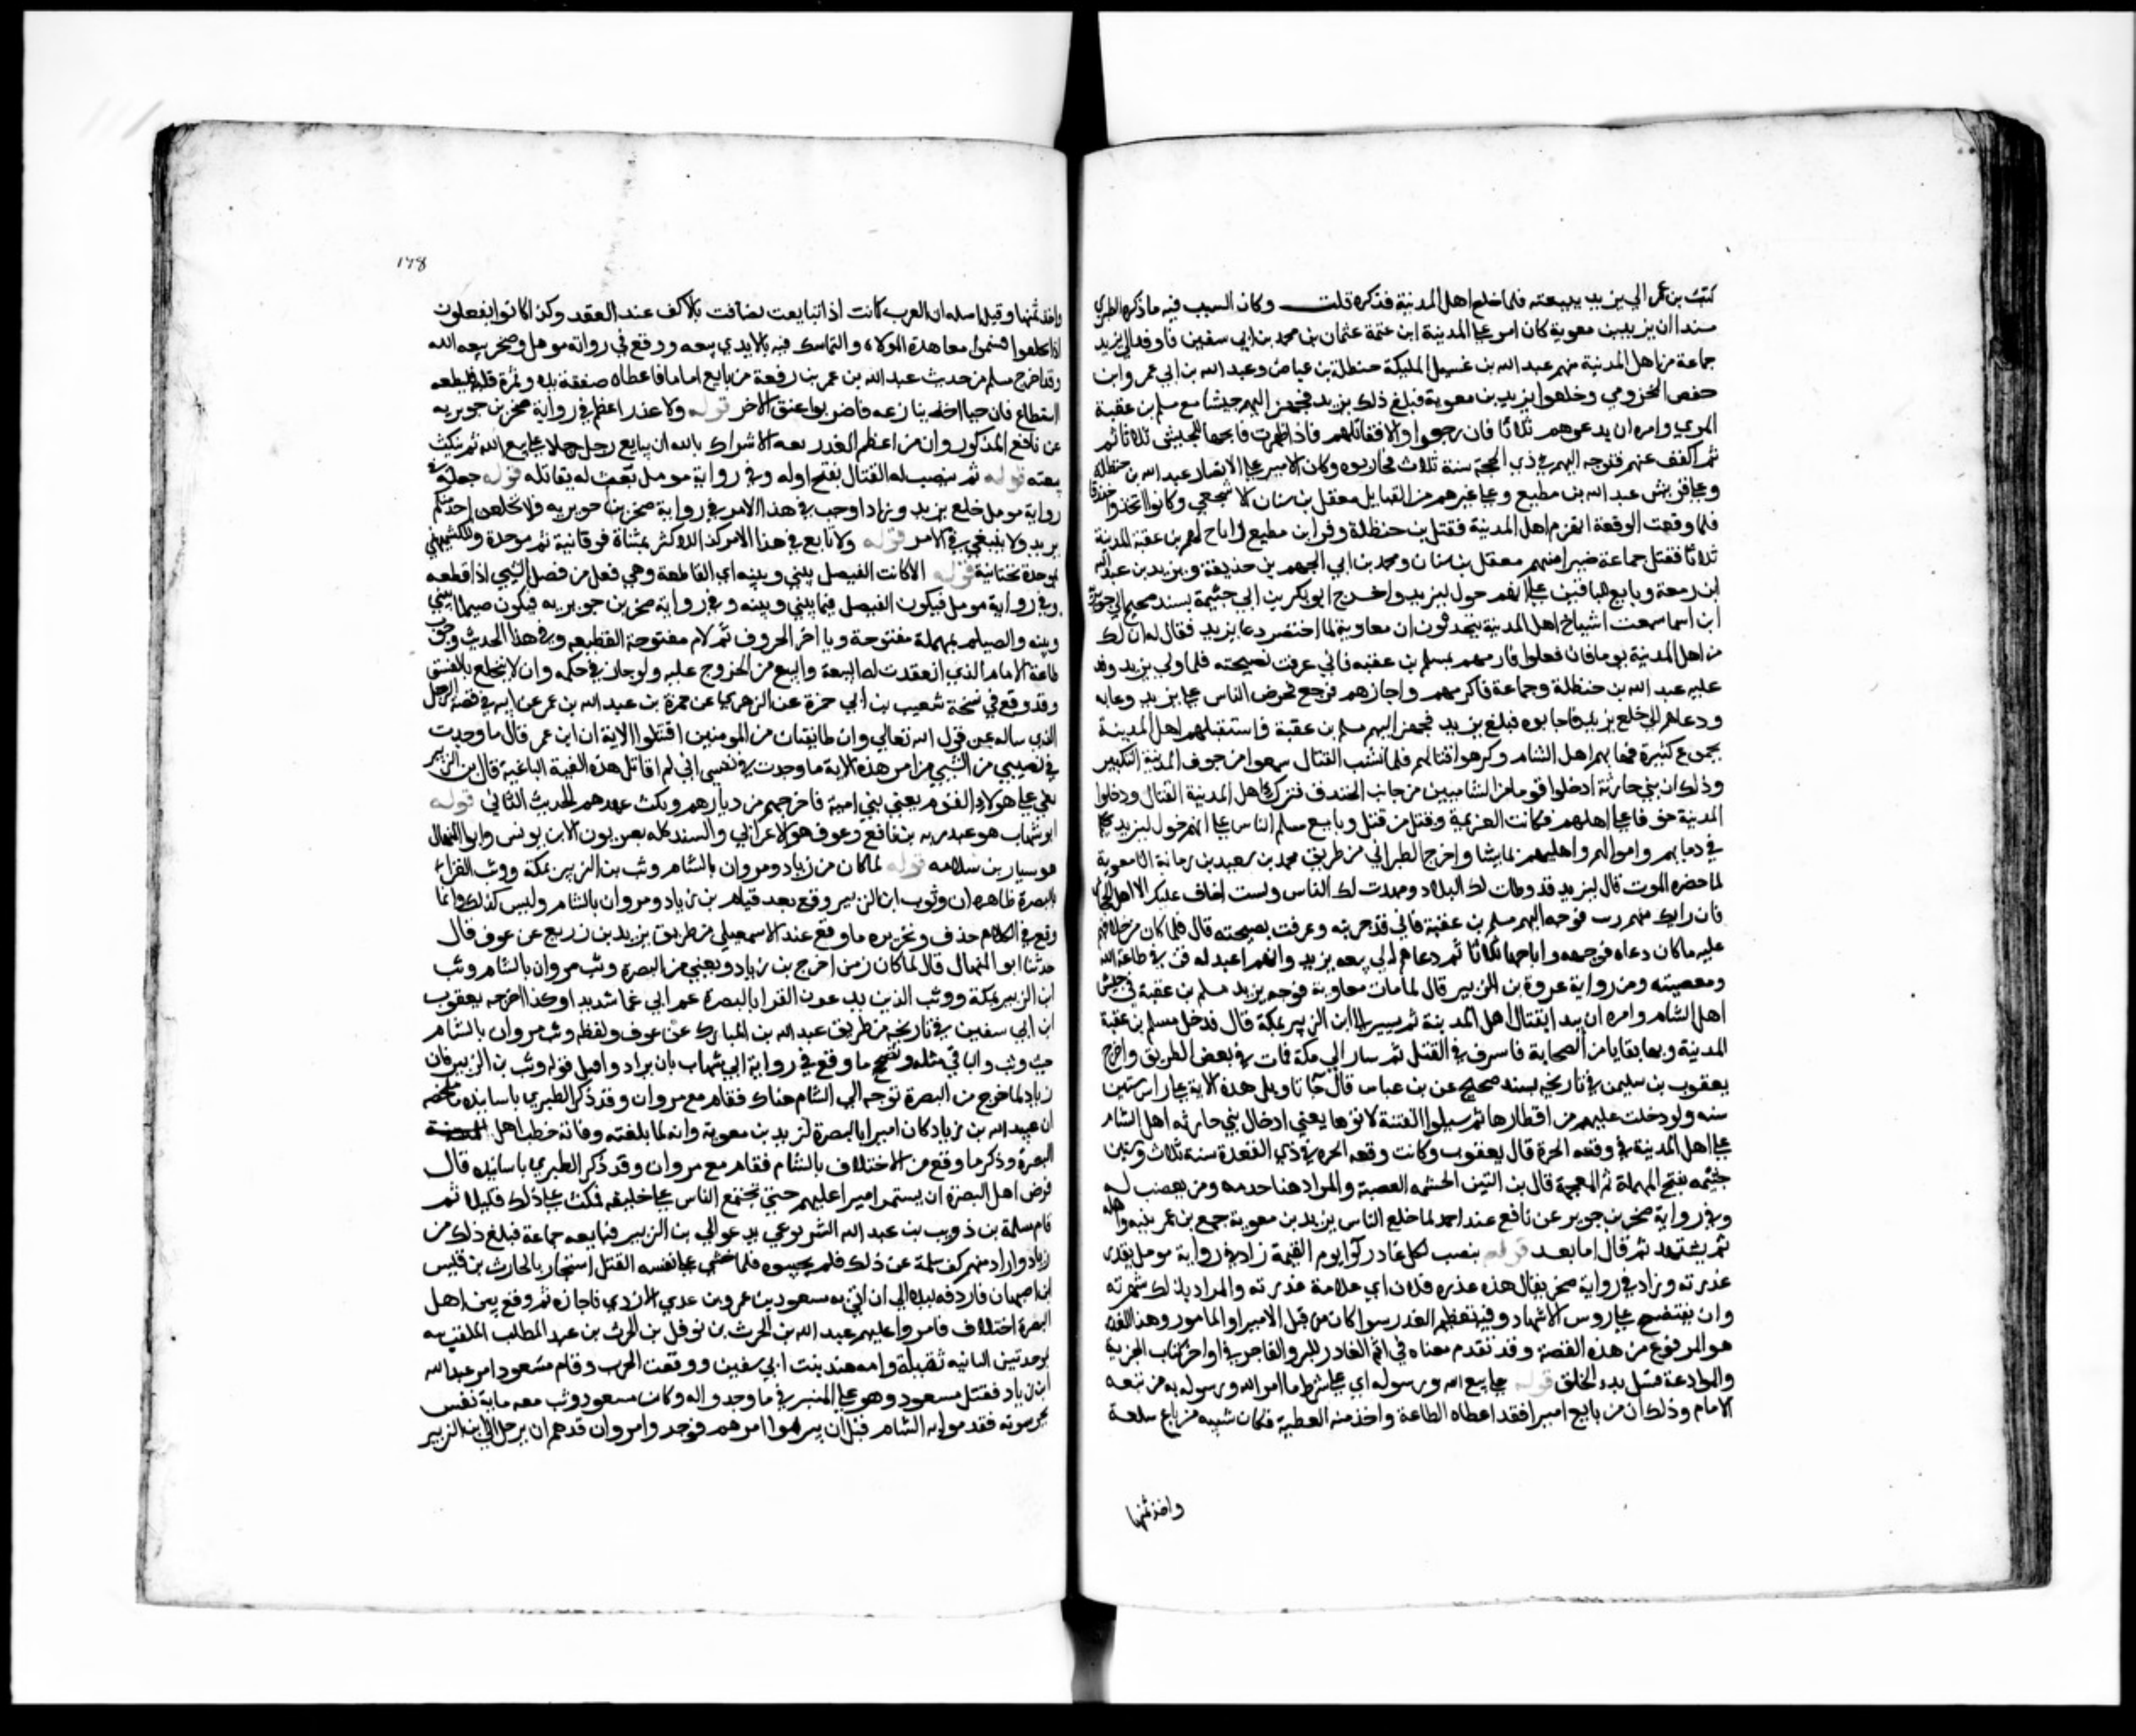 كتب بن عمر الي يزيد ببيعته فلما خلع اهل المدنية فذكره قلت وكان السبب فيه ما ذكره الطبري
مسندا ان يزيد بن معوية كان امر علي المدينة ابن عمه عثمان بن محمد بن ابي سفين فاوفد الي يزيد
جماعة من اهل المدنية منهم عبد الله بن غسيل المليكة حنظلة بن عياض وعبد الله بن ابي عمر وابن
حفص المخزومي وخلعوا يزيد بن معوية فبلغ ذلك يزيد فجهز اليهم جيشا مع مسلم بن عقبة
المري وامره ان يدعوهم ثلاثا فان رجعوا والا فقاتلهم فاذا ظهرت فابحها للجيش ثلاثا ثم
ثم اكفف عنهم فتوجه اليهم في ذي الحجة سنة ثلاث فحاربوه وكان الامير علي الانصار عبد الله بن حنظلة
وعلي قريش عبد الله بن مطيع وعلي غيرهم من القبايل معقل بن سنان الاشجعي وكانوا اتخذوا خندقا
فلما وقعت الوقعة انهزم اهل المدينة فقتل بن حنظلة وفر ابن مطيع واباح لهم بن عقبة المدينة
ثلاثا فقتل جماعة صبرا منهم معقل بن سنان ومحمد بن ابي الجهم بن حذيفة ويزيد بن عبد الله
ابن زمعة وبايع الباقين علي انهم خول ليزيد واخرج ابو بكر بن ابي خيثمة بسند صحيح الي جويرية
ابن اسما سمعت اشياخ اهل المدينة يتحدثون ان معاوية لما احتضر دعا يزيد فقال له ان لك
من اهل المدينة يوما فان فعلوا فارمهم بمسلم بن عقبة فاني عرفت نصيحته فلما ولي يزيد وفد
عليه عبد الله بن حنظلة وجماعة فاكرمهم واجازهم فرجع فحرض الناس علي يزيد وعابه
ودعاهم الي خلع يزيد فاجابوه فبلغ يزيد فجهز اليهم مسلم بن عقبة فاستقبلهم اهل المدينة
بجموع كثيرة فهابهم اهل الشام وكرهوا قتالهم فلما نشب القتال سمعوا من جوف المدينة التكبير
وذلك ان بني حارثة ادخلوا قوما من الشاميين من جانب الخندق فترك اهل المدينة القتال ودخلوا
المدينة خوفا علي اهلهم فكانت الهزيمة وقتل من قتل وبايع مسلم الناس علي انهم خول ليزيد يحكم
في دمايهم واموالهم واهليهم بما يشا واخرج الطبراني من طريق محمد بن سعيد بن رمانة ان معوية
لما حضره الموت قال ليزيد قد وطات لك البلاد ومهدت لك الناس ولست اخاف عليك الا اهل الحجاز
فان رابك منهم ريب فوجه اليهم مسلم بن عقبة فاني قد جربته وعرفت نصيحته قال فلما كان من خلافهم
عليه ما كان دعاه فوجهه واباحها ثلاثا ثم دعاهم الي بيعة يزيد وانهم اعبد له قن في طاعة الله
ومعصيته ومن رواية عروة بن الزبير قال لما مات معاوية فوجه يزيد مسلم بن عقبة في جيش
اهل الشام وامره ان يبدا بقتال اهل المدينة ثم يسير الي ابن الزبير بمكة قال فدخل مسلم بن عقبة
المدينة وبها بقايا من الصحابة فاسرف في القتل ثم سار الي مكة فمات في بعض الطريق واخرج
يعقوب بن سليمن في تاريخه بسند صحيح عن بن عباس قال جا تاويل هذه الاية علي راس ستين
سنه ولو دخلت عليهم من اقطارها ثم سيلوا الفتنة لاتوها يعني ادخال بني حارثه اهل الشام
علي اهل المدينة في وقعه الحرة قال يعقوب وكانت وقعه الحره في ذي القعدة سنة ثلاث وستين
حشمه بفتح المهملة ثم المعجمة قال بن التين الحشمه العصبة والمراد هنا خدمه ومن يغضب له
وفي رواية صخر بن جوير عن نافع عند احمد لما خلع الناس يزيد بن معوية جمع بن عمر بنيه واهله
ثم يشتهد ثم قال اما بعد قوله ينصب لكل غادر لوا يوم القيمة زاد في رواية مومل بقدر
غدرته وزاد في رواية صخر يقال هذه غدره فلان اي علامة غدرته والمراد بذلك شهرته
وان يفتضح علي روس الاشهاد وفيه تعظيم الغدر سوا كان من قبل الامير او المامور وهذا القدر
هو المرفوع من هذه القصة وقد تقدم معناه في اثم الغادر للبر والفاجر في اواخر كتاب الجزية
والموادعة قبل بدء الخلق قوله علي بيع الله ورسوله اي علي شرط ما امر الله ورسوله به من بيعه
الامام وذلك ان من بايع اميرا فقد اعطاه الطاعة واخذ منه العطية فكان شبيه من باع سلعة
واخذ ثمنها
١٧٨
واخذ ثمنها وقيل اصله ان العرب كانت اذا تبايعت تصافت بالاكف عند العقد وكذا كانوا يفعلون
اذا تحالفوا فسموا معاهدة الولاء والتماسك فيه بالايدي بيعه ووقع في رواية مومل وصخر بيعه الله
وقد اخرج مسلم من حديث عبد الله بن عمر بن رفعة من بايع اماما فاعطاه صفقة يده وثمرة قلبه فليطعه
استطاع فان جا احد ينازعه فاضربوا عنق الاخر قوله ولا غدر اعظم في رواية صخر بن جويريه
عن نافع المذكور وان من اعظم الغدر بعد الاشراك بالله ان يبايع رجل رجلا علي بيع الله ثم ينكث
بيعته قوله ثم ينصب له القتال بفتح اوله وفي رواية مومل يبعث له يقاتله قوله خلعه في
رواية مومل خلع يزيد وزاد او خب في هذا الامر في رواية صخر بن جويريه ولا يخلعن احد منكم
يزيد ولا ينبغي في الامر قوله ولا تابع في هذا الامر كذا للاكثر بمثناة فوقانية ثم موحدة وللكشميهني
بموحدة تحتانية قوله الا كانت الفيصل بيني وبينه اي القاطعة وهي فعل من فصل الشيي اذا قطعه
وفي رواية مومل فيكون الفيصل فيما بيني وبينه وفي رواية صخر بن جويريه فيكون صيلما بيني
وبينه والصيلم بمهملة مفتوحة ويا اخر الحروف ثم لام مفتوحة القطيعه وفي هذا الحديث وجوب
طاعة الامام الذي انعقدت له البيعة والمنع من الخروج عليه ولو جار في حكمه وان لا ينخلع بالفسق
وقد وقع في نسخة شعيب بن ابي حمزة عن الزهري عن حمزة بن عبد الله بن عمر عن ابيه في قصة الرجل
الذي ساله عن قول الله تعالي وان طايفتان من المومنين اقتتلوا الاية ان ابن عمر قال ما وجدت
في نفسي من الشيي من امر هذه الاية ما وجدت في نفسي اني لم اقاتل هذه الفية الباغية قال بن الزبير
بغي علي هولاء القوم يعني بني امية فاخرجهم من ديارهم ونكث عهدهم الحديث الثاني قوله
ابو شهاب هو عبد ربه بن نافع وعوف هو الاعرابي والسند كله بصريون الا ابن يونس وابو المنهال
هو سيار بن سلامه قوله لما كان من زياد ومروان بالشام وثب بن الزبير بمكة ووثب القراء
بالبصرة ظاهره ان وثوب ابن الزبير وقع بعد قيام بن زياد ومروان بالشام وليس كذلك وانما
وقع في الكلام حذف وتحريره ما وقع عند الاسمعيلي من طريق يزيد بن زريع عن عوف قال
حدثنا ابو المنهال قال لما كان زمن اخرج بن زياد ويعني من البصرة وثب مروان بالشام وثب
ابن الزبير بمكة ووثب الذين يدعون القرا بالبصرة غم ابي غما شديدا وكذا اخرجه يعقوب
ابن ابي سفين في تاريخه من طريق عبد الله بن المبارك عن عوف ولفظه وثب مروان بالشام
حيث وثب والباقي مثله ويصحح ما وقع في رواية ابي شهاب بان يزاد واو قبل قوله وثب بن الزبير فان
زياد لما خرج من البصرة توجه الي الشام هناك فقام مع مروان وقد ذكر الطبري باسانيده ما ملخصه
ان عبيد الله بن زياد كان اميرا بالبصرة ليزيد بن معوية وانه لما بلغته وفاته خطب اهل
البصرة وذكر ما وقع من الاختلاف بالشام فقام مع مروان وقد ذكر الطبري باسانيده قال
فرض اهل البصرة ان يستمر اميرا عليهم حتي تجتمع الناس علي خليفه فمكث علي ذلك قليلا ثم
قام سلمة بن ذويب بن عبد الله اليربوعي يدعو الي بن الزبير فبايعه جماعة فبلغ ذلك بن
زياد واراد منهم كف سلمة عن ذلك فلم يجيبوه فلما خشي علي نفسه القتل استجار بالحارث بن قليس
ابن صهبان فاردفه ليلا الي ان اتي به مسعود بن عمرو بن عدي الازدي فاجازه ثم وقع بين اهل
البصرة اختلاف فامروا عليهم عبد الله بن الحرث بن نوفل بن الحرث بن عبد المطلب الملقب ببه
بموحدتين الثانيه ثقيلة وامه هند بنت ابي سفين ووقعت الحرب وقام مسعود بامر عبد الله
ابن زياد فقتل مسعود وهو علي المنبر في ما وجدوا له وكان مسعود وثب معه ماية نفس
يحرسونه فقدموا به الشام قبل ان يبرموا امرهم فوجدوا مروان قد هم ان يرحل الي ابن الزبير